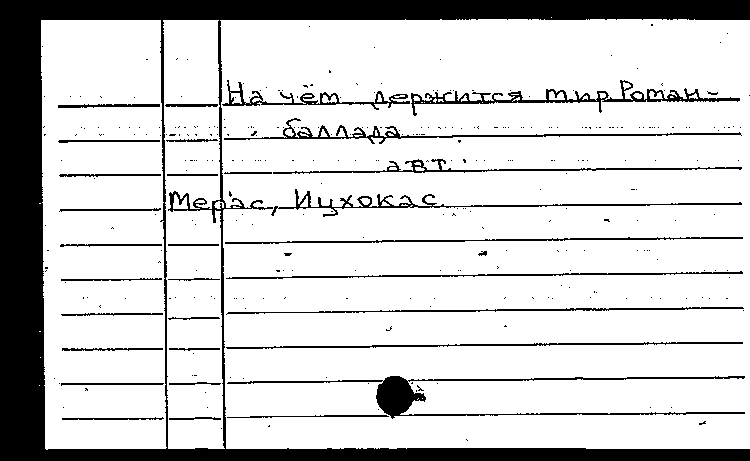 На чём держится мир Роман-
баллада
авт.
Мерас, Ицхокас.